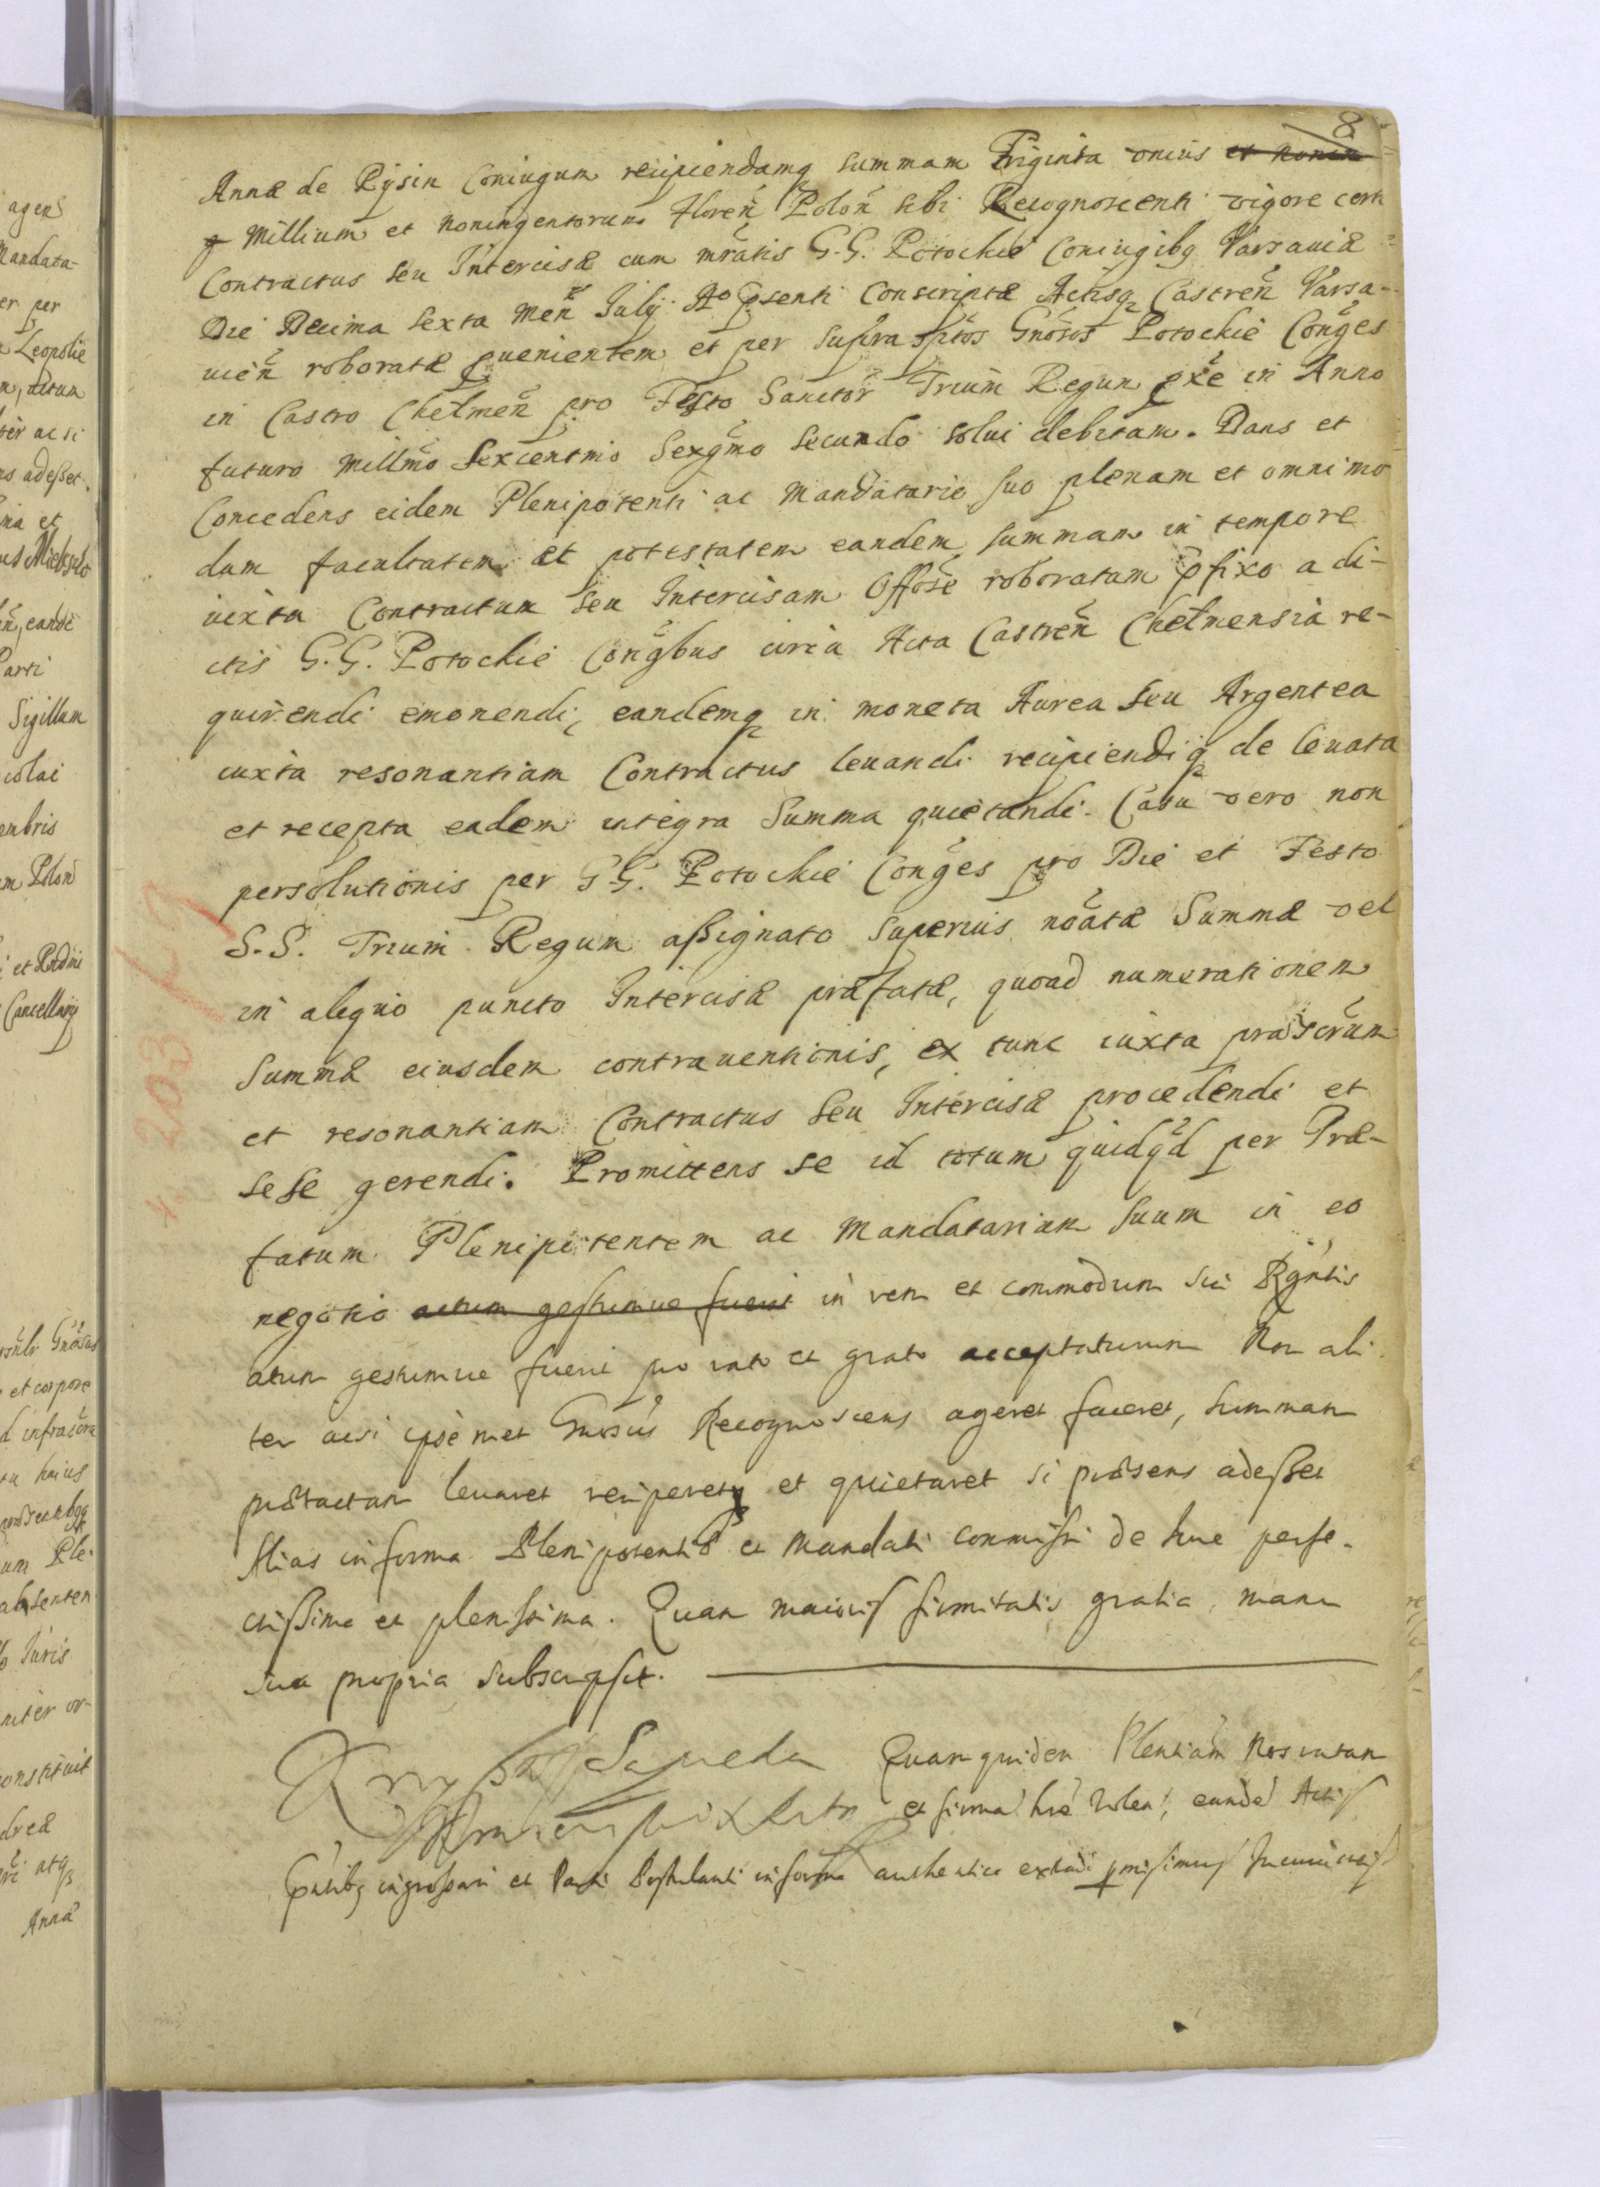 8
Annæ de Rysin Coniugum recipiendamq summam Triginta onius et nonin
Millium et noningentorum Floreñ Poloñ sibi Recognoscenti vigore certi
Contractus seu Intercisæ cum mratis G.G. Potockie Coniugibq Varsaviæ
Die Decima sexta Meñ July Aº pſenti Conscriptæ Actisq Castreñ Varsa-
vieñ roboratæ pvenientem et per supra sptos Gnosos Potockie Conges
in Castro Chełmeñ pro Festo Sanctor Trium Regun pxe in Anno
futuro Millmo Sexcentmo Sexgmo secundo solui debitam. Dans et
Concedens eidem Plenipotenti ac Mandatario suo plenam et omnimo
dam facultatem et potestatem eandem summam in tempore
iuxta Contractum seu Intercisam Offose roboratam pfixo a di-
ctis G.G. Potockie Congbus circa Acta Castreñ Chełmensia re-
quirendi emonendi, eandemq in moneta Aurea seu Argentea
iuxta resonantiam Contractus levandi recipiendiq de levata
et recepta eadem integra Summa quietandi. Casu vero non
persolutionis per G.G. Potockie Conges pro Die et Festo
S.S. Trium Regum assignato superius noatæ Summæ vel
in aliquo puncto Intercisæ præfatæ, quoad numerationem
Summæ eiusdem contraventionis, ex tunc iuxta præscrum
et resonantiam Contractus seu Intercisæ procedendi et
sese gerendi. Promittens se id totum quidqd per Præ-
fatum Plenipotentem ac Mandatarium suum in eo
negotio actum gestumve fuerit in rem et commodum sui Rgntis
actum gestumve fuerit pro rato et grato acceptaturum Non ali
ter acsi ipsemet Gnosus Recognoscens ageret faceret, summam
prætactam levaret reciperetq et quietaret si præsens adesset
Alias in forma Plenipotentiæ et Mandati commissi de hinc perfe-
ctissima et plenissima. Quam maioris firmitatis gratia manu
sua propria subscripsit.
Krzysztoff Sapieha Quamquidem Plentiam Nos ratam
et firmã hrẽ volen, eandẽ Actis
pntibq ingrossari et Parti Postulanti in forma authentica extradi pmisimus